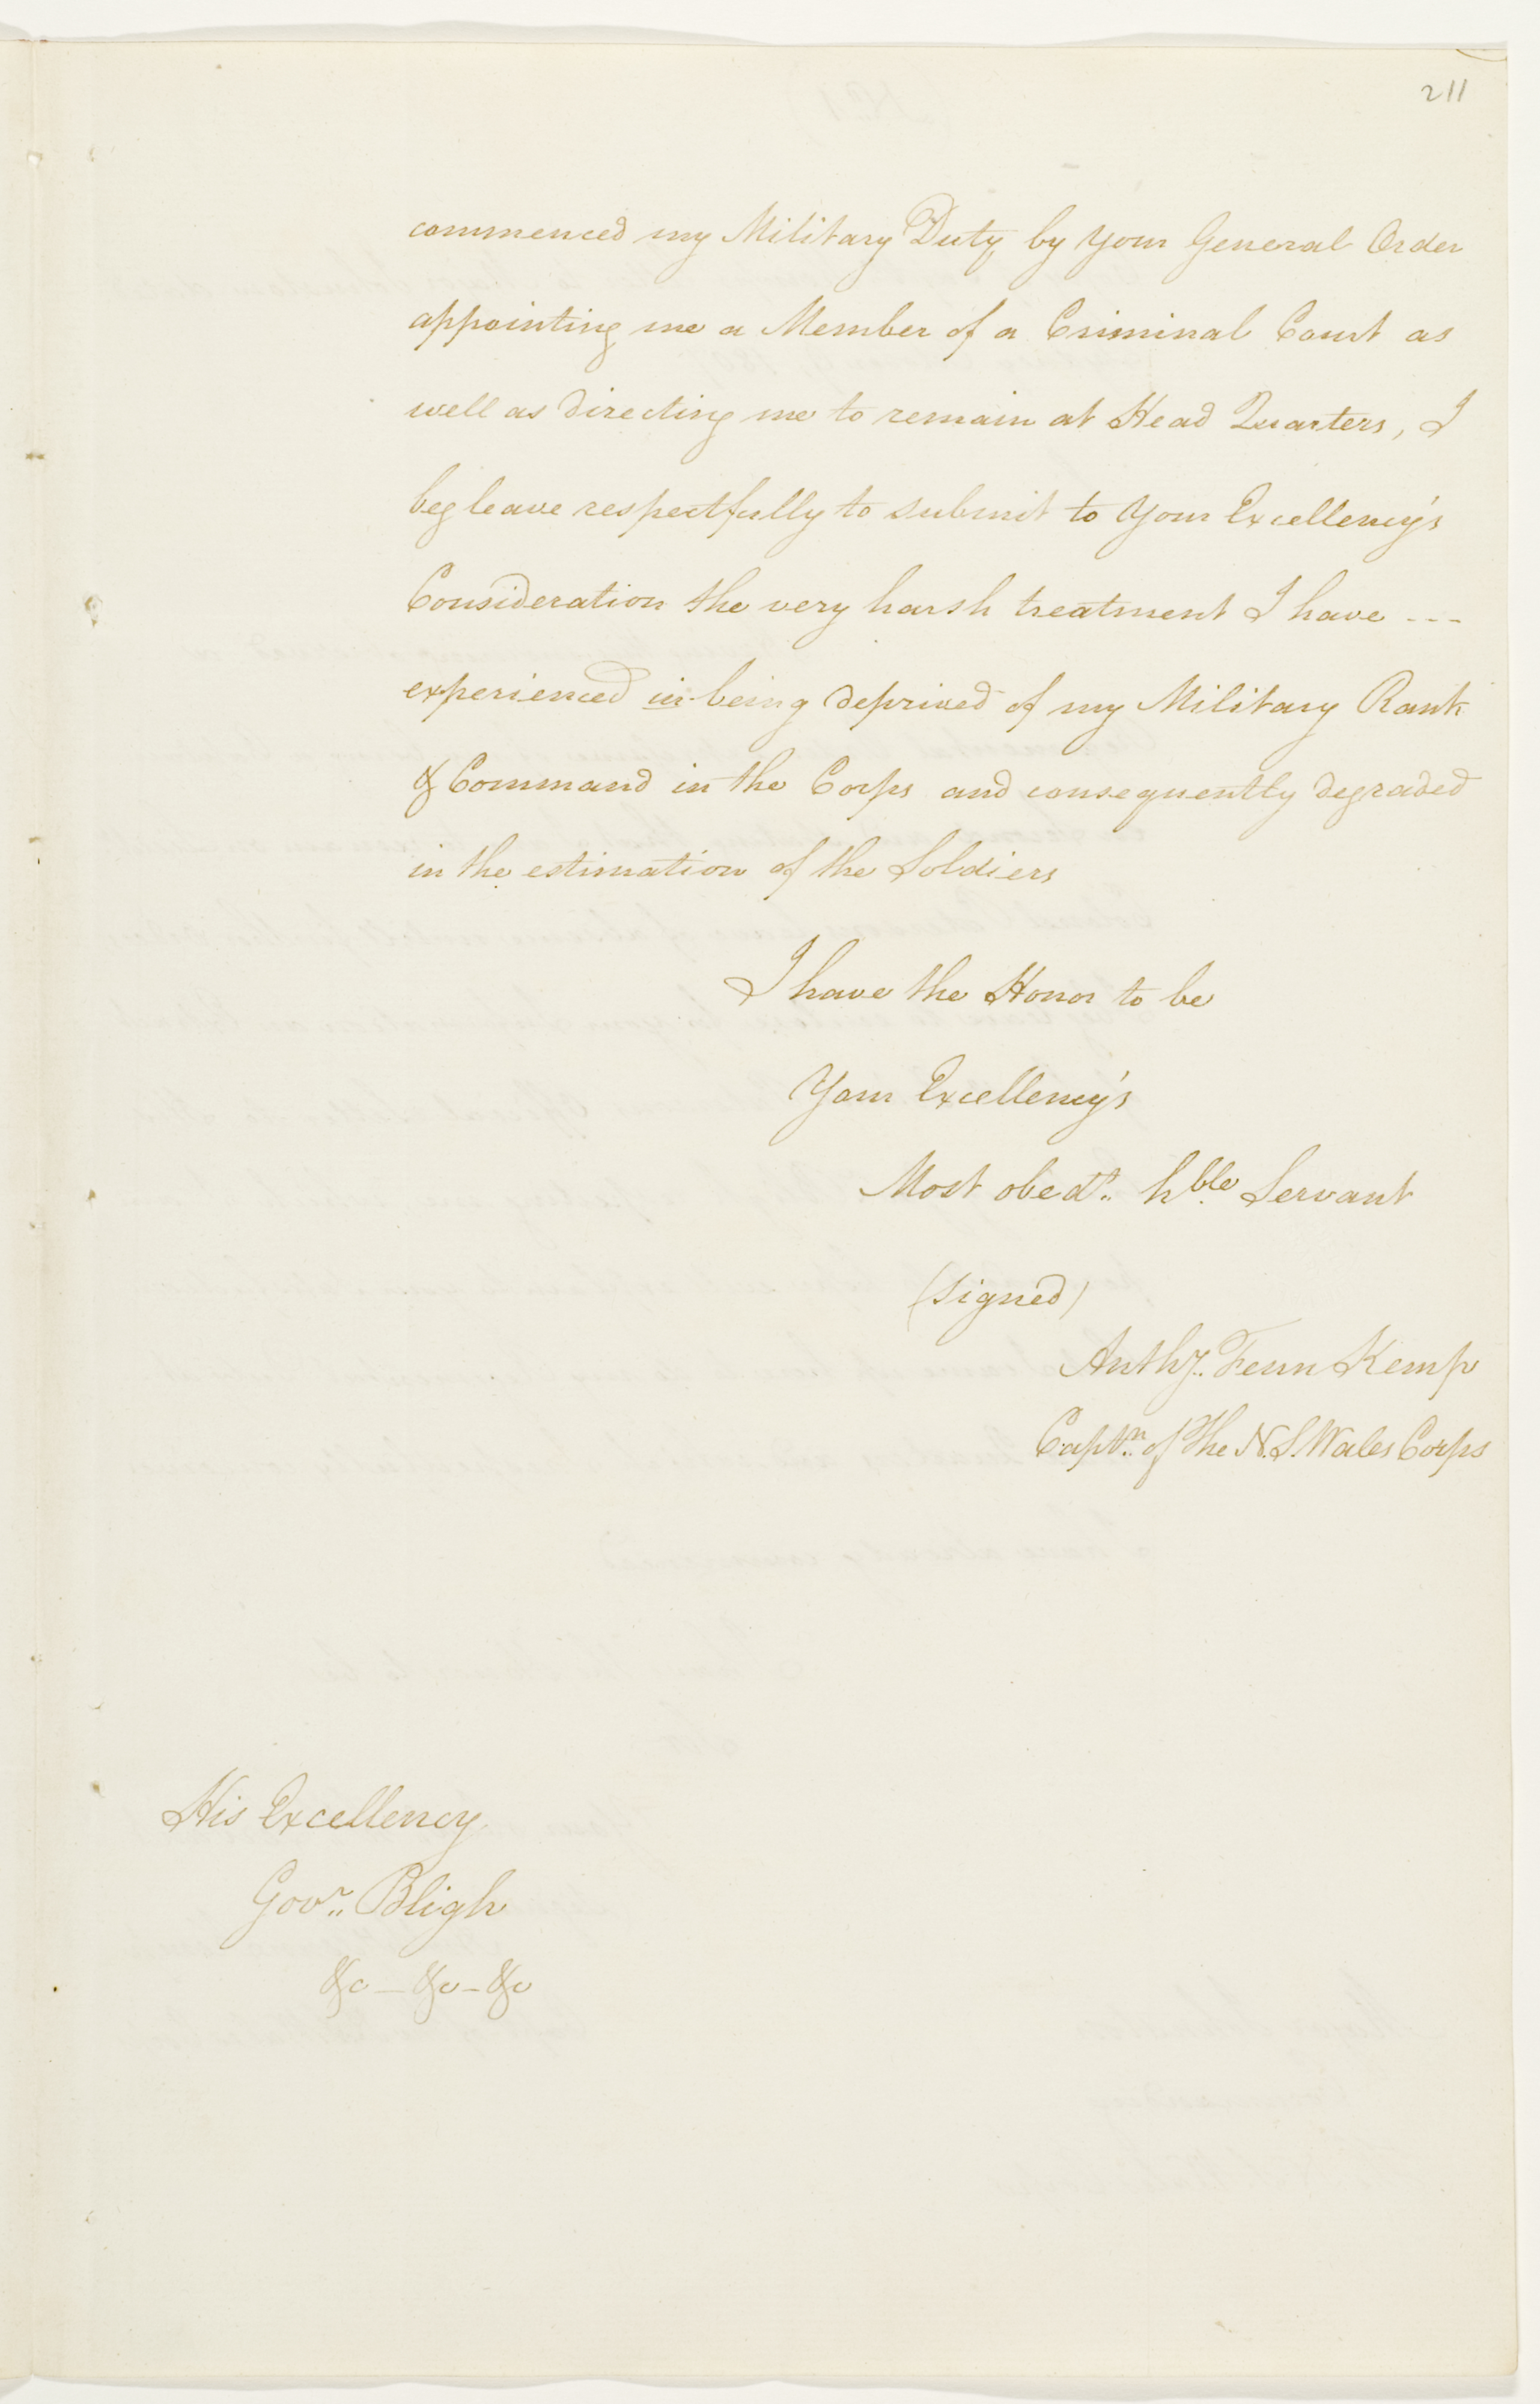 211
commenced my Military Duty by Your General Order
appointing me a Member of a Criminal Court as
well as directing me to remain at Head Quarters, I
beg leave respectfully to submit to Your Excellency's
Consideration the very harsh treatment I have ---
experienced in being deprived of my Military Rank
& Command in the Corps and consequently degraded
in the estimation of the Soldiers
I have the Honor to be
Your Excellency's
Most obedt. hble Servant
(signed)
Anthy. Fenn Kemp
Captn. of The N. S. Wales Corps
His Excellency
Govr. Bligh
&c — &c - &c